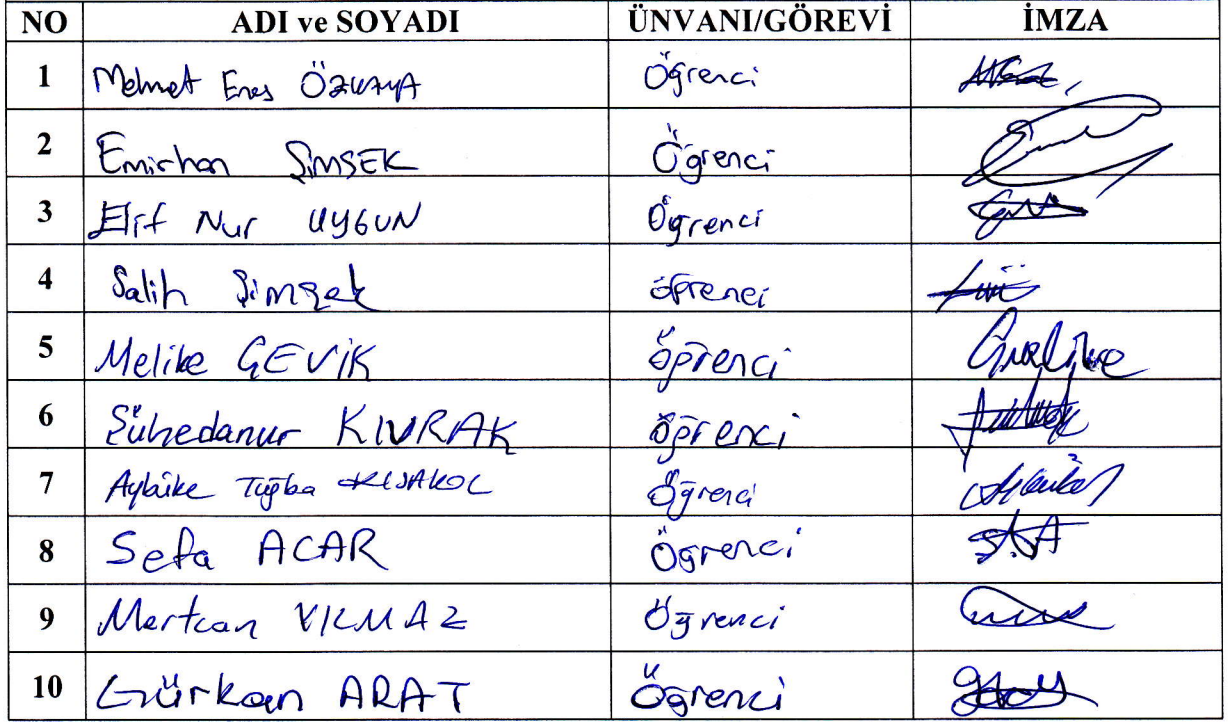 NO ADI ve SOYADI ÜNVANI/GÖREVİ İMZA
1 Mehmet Enes ÖZKAYA Öğrenci
2 Emirhan ŞİMŞEK Öğrenci
3 Elif Nur UYGUN Öğrenci
4 Salih Şimşek öğrenci
5 Melike ÇEVİK öğrenci
6 Şühedanur KIVRAK öğrenci
7 Aybüke Tuğba Öğrenci
8 Sefa ACAR Öğrenci
9 Mertcan YILMAZ Öğrenci
10 Gürkan ARAT Öğrenci